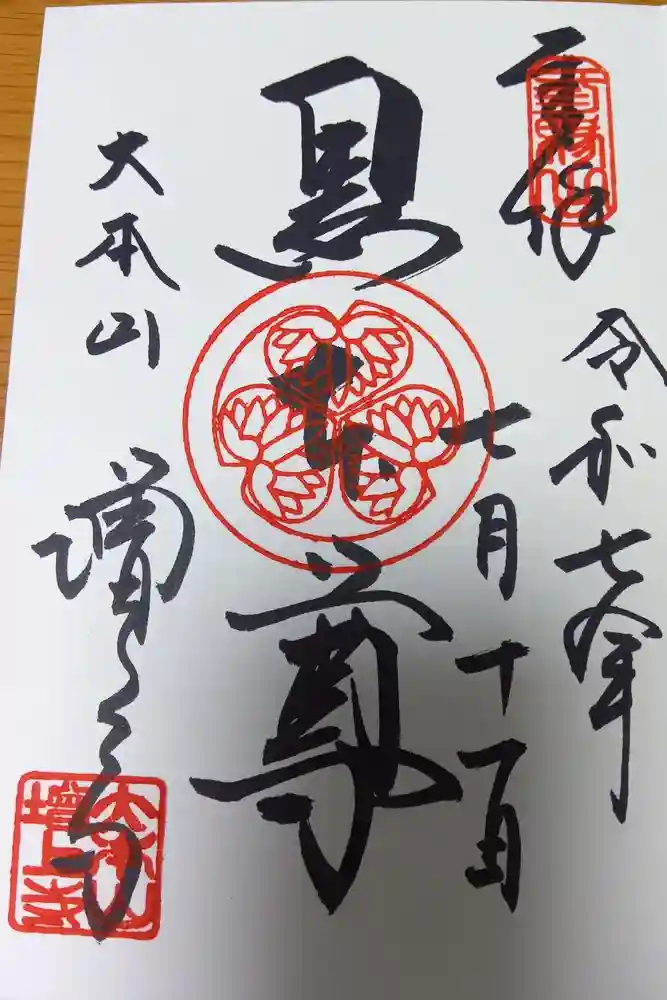 奉拝
令和七年
七月十一日
黒本尊
大本山
増上寺
大本山
増上寺